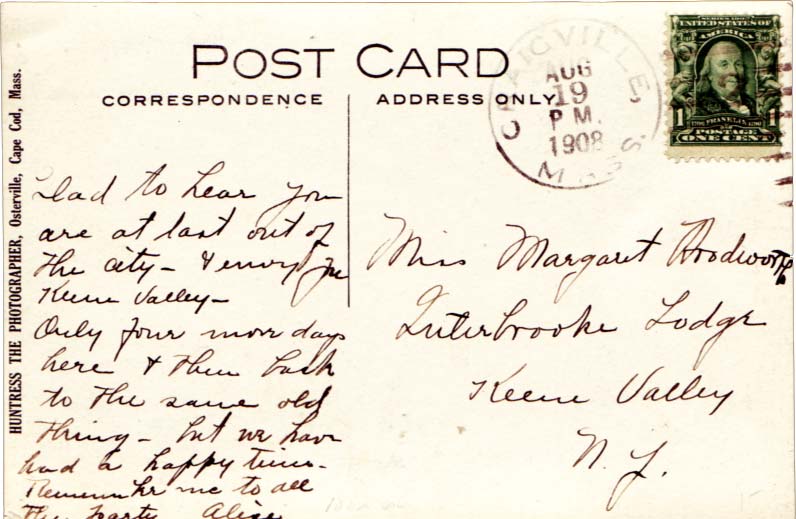 POST CARD
CORRESPONDENCE
ADDRESS ONLY.
HUNTRESS THE PHOTOGRAPHER, Osterville, Cape Cod, Mass.
CRAIGVILLE,
AUG
19
P M.
1908
MASS
SERIES 1902
UNITED STATES OF
AMERICA
1 FRANKLIN 1
POSTAGE
ONE CENT
Glad to hear you
are at last out of
the city – & envy you
Keene Valley –
Only four more days
here & then back
to the same old
thing – but we have
had a happy time.
Remember me to all
the party Alice
Miss Margaret Woodworth
Interbrooke Lodge
Keene Valley
N. Y.